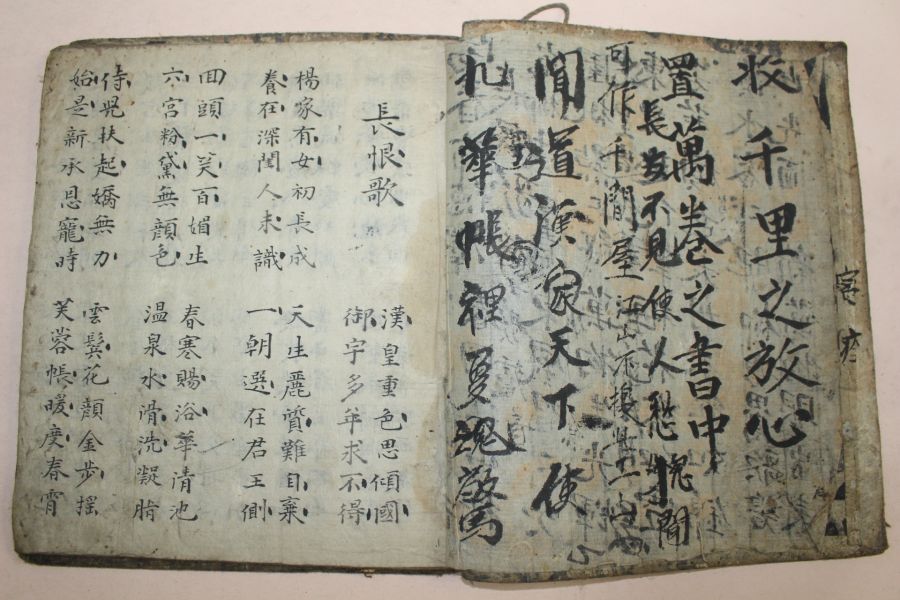 收千里之放心
置萬卷之書中
長安不見使人愁
可作千間屋江山不換
聞道漢家天下使
九華帳裡夢魂驚
長恨歌
漢皇重色思傾國
御宇多年求不得
楊家有女初長成
養在深閨人未識
天生麗質難自棄
一朝選在君王側
囬頭一笑百媚生
六宮粉黛無顔色
春寒賜浴華清池
溫泉水滑洗凝脂
侍兒扶起嬌無力
始是新承恩寵時
雲鬓花顔金步搖
芙蓉帳暖度春宵